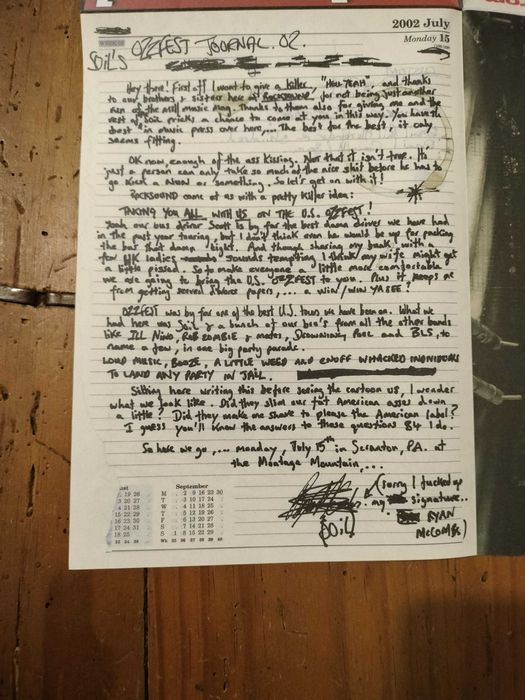 2002 July
Monday 15
SOiL's OZZFEST JOURNAL. 02.
Hey there! First off I want to give a killer "HELL YEAH", and thanks
to our brothers & sisters here at ROCKSOUND for not being just another
run of the mill music mag. Thanks to them also for giving me and the
rest of Soil pricks a chance to come at you in this way. You have the
best in music press over here,... The best for the best, it only
seems fitting.
OK now, enough of the ass kissing. Not that it isn't true. It's
just a person can only take so much of the nice shit before he has to
go kick a nun or something. So let's get on with it!
ROCKSOUND came at us with a pretty killer idea:
TAKING YOU ALL WITH US ON THE U.S. OZZFEST!
Yeah our bus driver Scott is by far the best damn driver we have had
in the past year touring, but I don't think even he would be up for packing
the bus that damn tight. And though sharing my bunk with a
few UK ladies sounds tempting I think my wife might get
a little pissed. So to make everyone a little more comfortable
we are going to bring the U.S. OZZFEST to you. Plus it keeps me
from getting served divorce papers,... a win/win
OZZFEST was by far one of the best U.S. tours we have been on. What we
had here was Soil & a bunch of our bro's from all the other bands
like ILL Niño, ROB ZOMBIE & mates, Drowning Pool and BLS, to
name a few, in one big party parade.
LOUD MUSIC, BOOZE, A LITTLE WEED AND ENUFF WHACKED INDIVIDUALS
TO LAND ANY PARTY IN JAIL.
Sitting here writing this before seeing the cartoon us, I wonder
what we look like.. Did they slim our fat American asses down
a little? Did they make me shave to please the American label?
I guess you'll know the answers to these questions B4 I do.
So here we go,... Monday, July 15th in Scranton, P.A. at
the Montage Mountain,...
(sorry I fucked up
my signature..
RYAN
McCombs)
(SOiL)
September
M 2 9 16 23 30
T 3 10 17 24
W 4 11 18 25
T 5 12 19 26
F 6 13 20 27
S 7 14 21 28
S 1 8 15 22 29